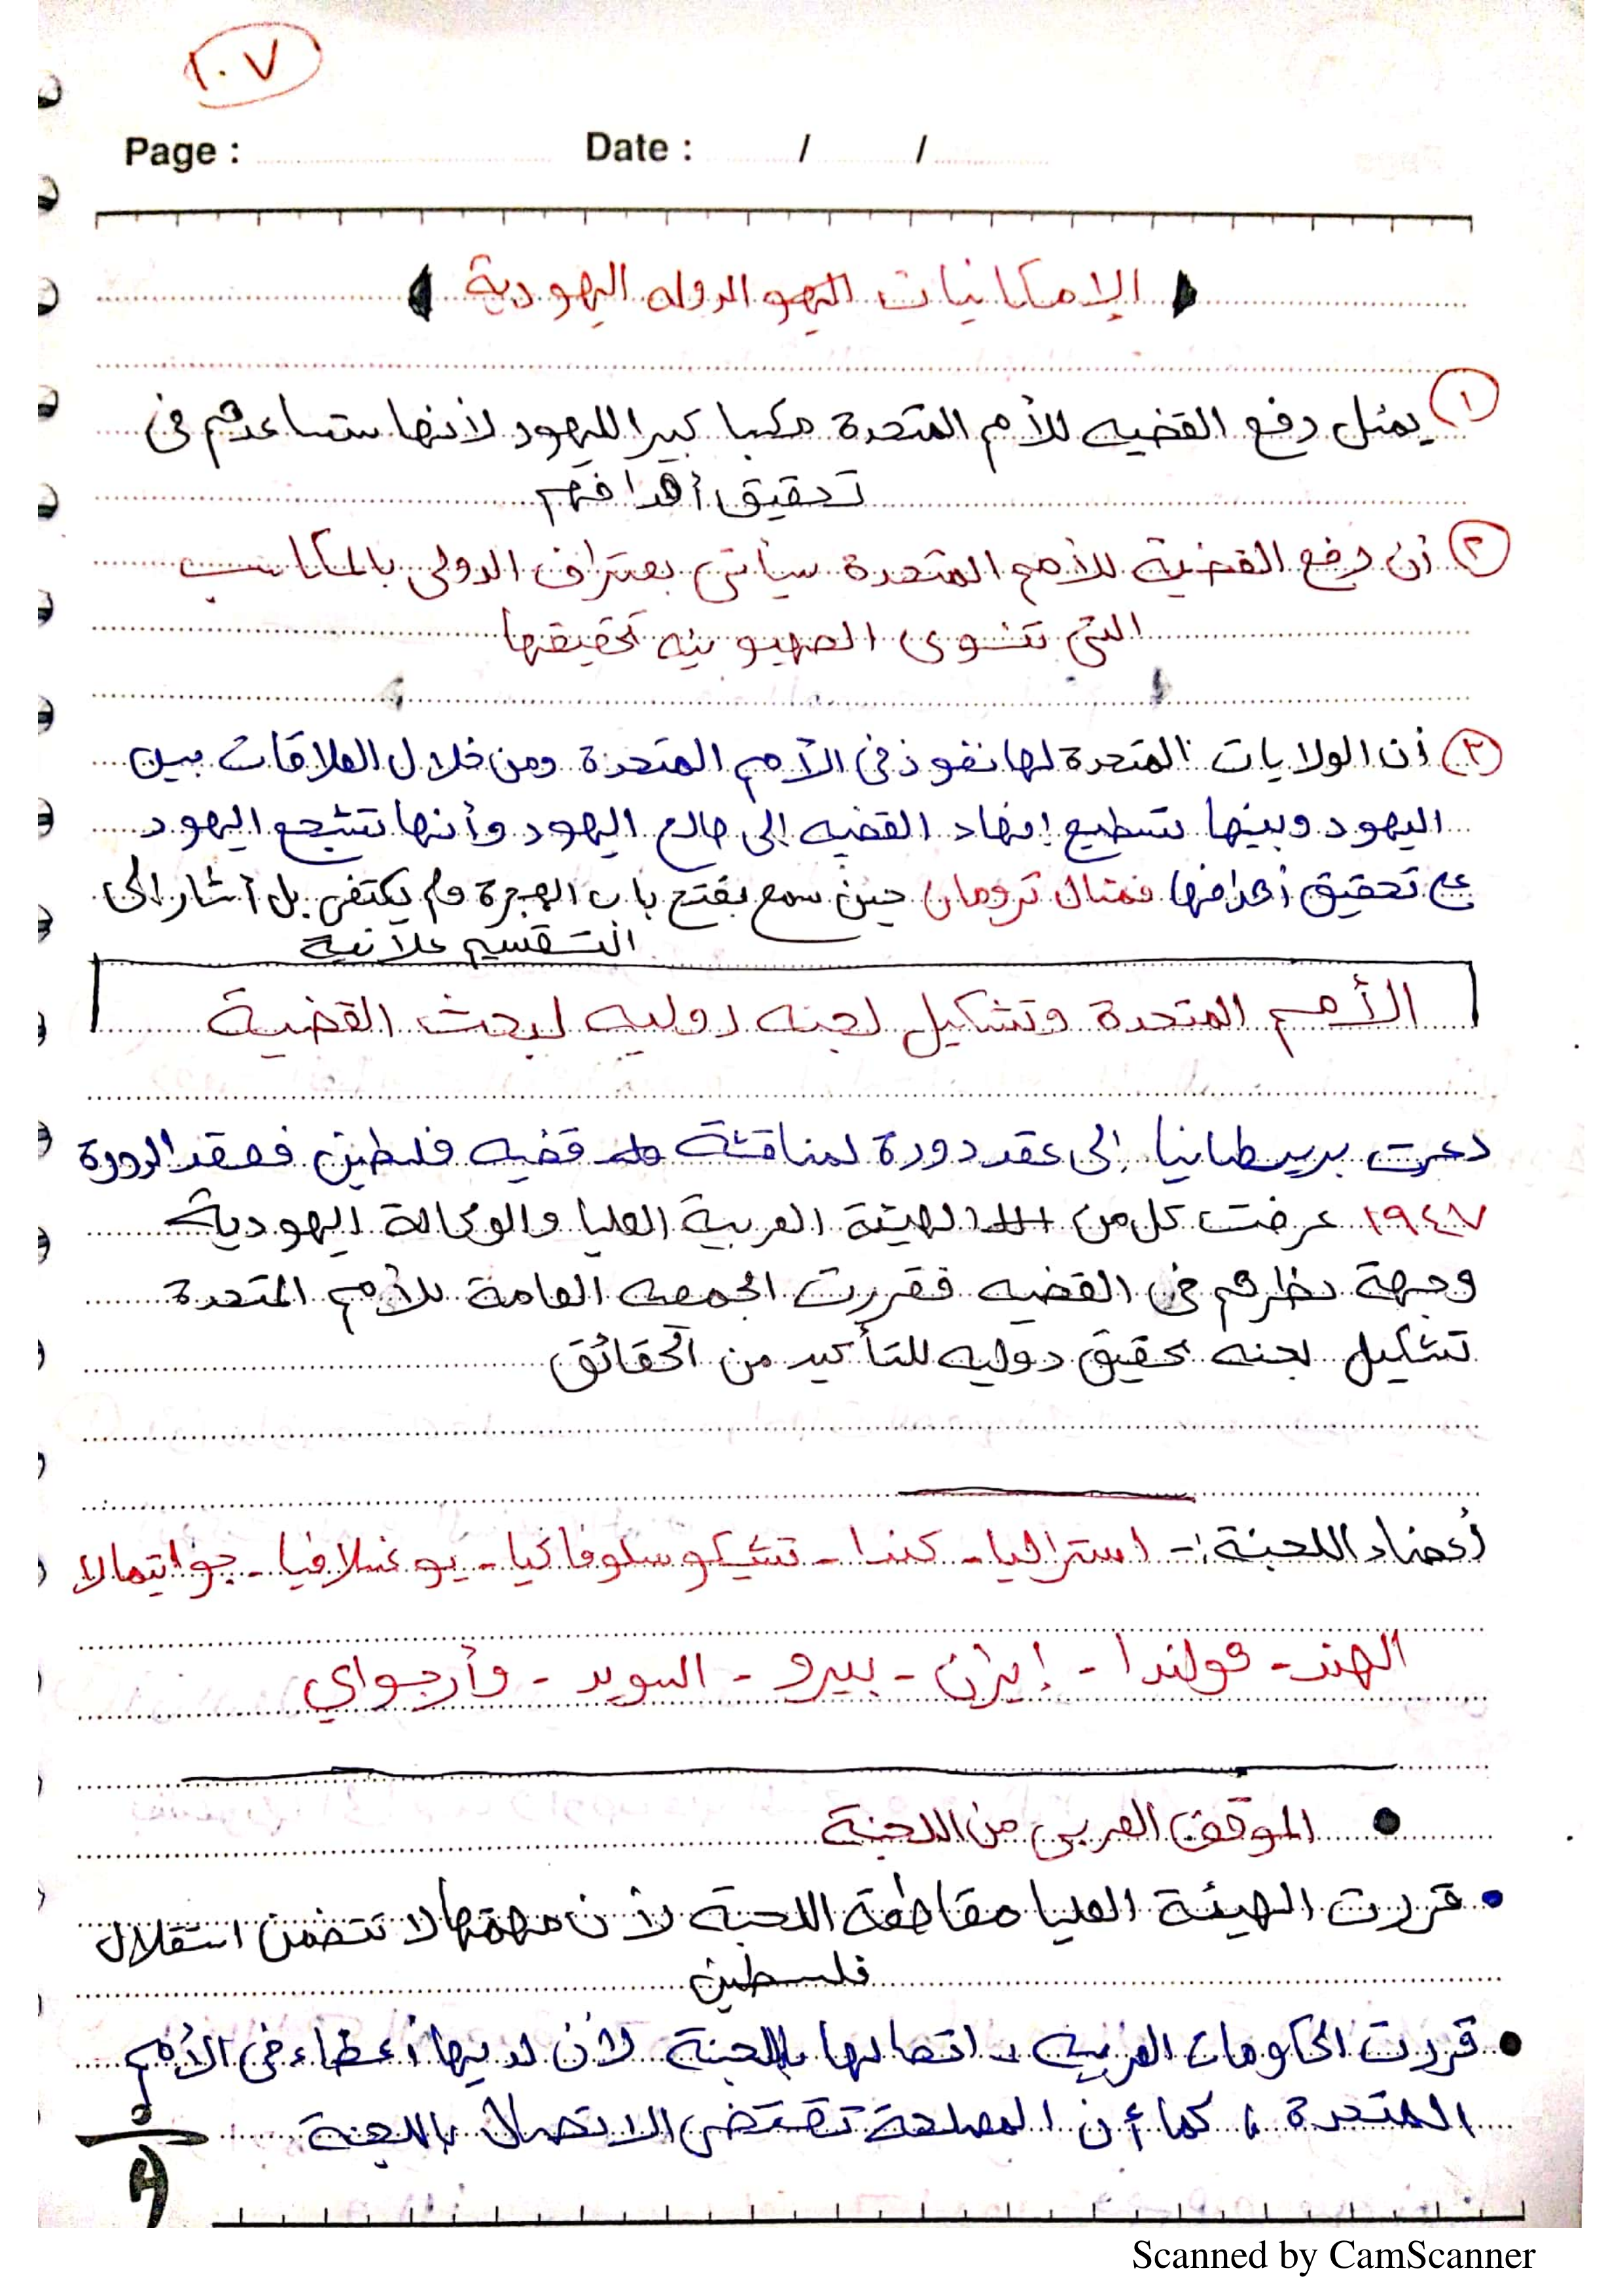 ١٠٧
Page : Date : / /
الإمكانيات اليهو الدوله اليهودية
١ يمثل دفع القضيه للأمم المتحدة مكسبا كبيرا لليهود لأنها ستساعدهم فى
تحقيق أهدافهم
٢ أن رفع القضية للأمم المتحدة سيأتى بعتراف الدولى بالمكاسب
التى تنوى الصهيونيه تحقيقها
٣ أن الولايات المتحدة لها نفوذ فى الأمم المتحدة ومن خلال العلاقات بين
اليهود وبينها تسطيع إنهاء القضيه إلى صالح اليهود وأنها تشجع اليهود
على تحقيق أهدافها فمثال ترومان حين سمع بفتح باب الهجرة ولم يكتفى بل أشار إلى
التقسيم علانية
الأمم المتحدة وتشكيل لجنه دوليه لبحث القضية
دعت بريطانيا إلى عقد دورة لمناقشة قضيه فلسطين فعقد الدورة
١٩٤٧ عرضت كل من الهيئة العربية العليا والوكالة اليهودية
وجهة نظرهم فى القضيه فقررت الجمعيه العامة للأمم المتحدة
تشكيل لجنه تحقيق دوليه للتأكيد من الحقائق
أعضاء اللجنة :- استراليا - كندا - تشيكوسلوفاكيا - يوغسلافيا - جواتيمالا
الهند - هولندا - إيران - بيرو - السويد - وأرجواي
● الموقف العربى من اللجنة
• قررت الهيئة العليا مقاطعة اللجنة لأن مهمتها لا تتضمن استقلال
فلسطين
● قررت الحكومات العربيه اتصالها باللجنة لأن لديها أعضاء فى الأمم
المتحدة ، كما أن المصلحة تقتضى الاتصال باللجنة
Scanned by CamScanner